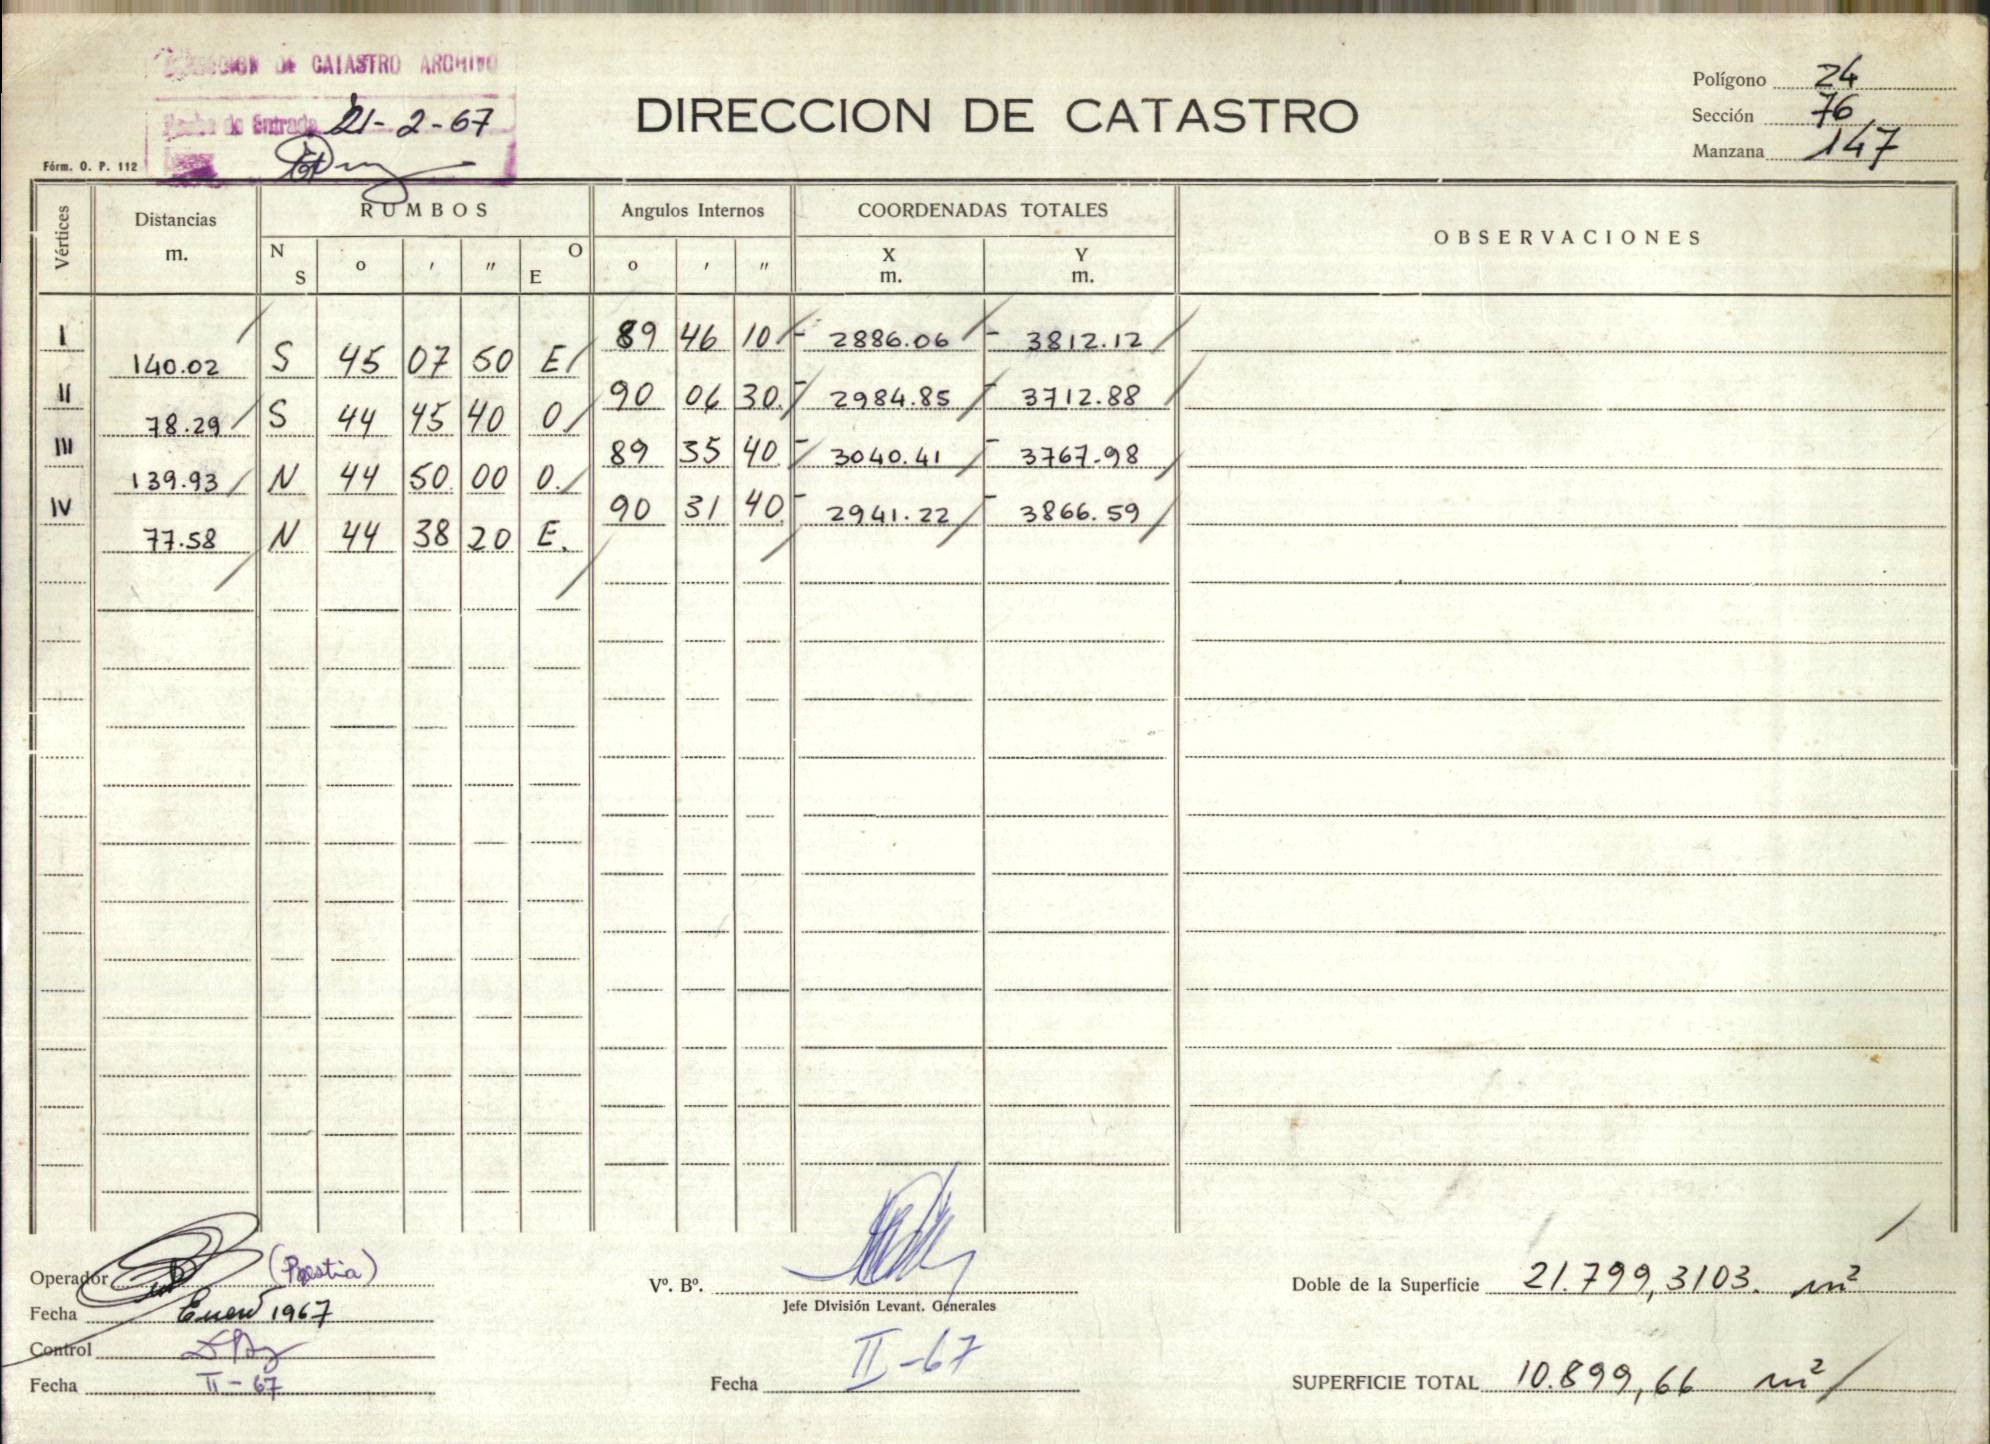 DIRECCION DE CATASTRO ARCHIVO
Fecha de Entrada 21-2-67
Fórm. O. P. 112
DIRECCION DE CATASTRO
Polígono 24
Sección 76
Manzana 147
Vértices Distancias m. RUMBOS N S o ' " O E Angulos Internos o ' " COORDENADAS TOTALES X m. Y m. OBSERVACIONES
I 89 46 10 - 2886.06 - 3812.12
140.02 S 45 07 50 E
II 90 06 30 - 2984.85 - 3712.88
78.29 S 44 45 40 O
III 89 35 40 - 3040.41 - 3767.98
139.93 N 44 50 00 O.
IV 90 31 40 - 2941.22 - 3866.59
77.58 N 44 38 20 E.
Operador
Fecha Enero 1967
Control
Fecha II-67
Vº. Bº.
Jefe División Levant. Generales
Fecha II-67
Doble de la Superficie 21.799,3103. m²
SUPERFICIE TOTAL 10.899,66 m²